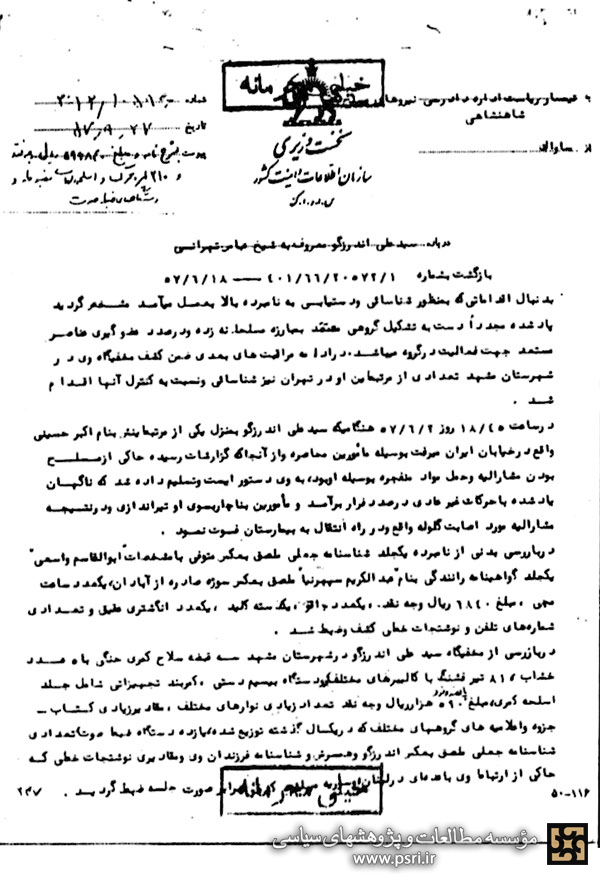 خیلی محرمانه
به تیمسار ریاست اداره دادرسی نیروهای
شاهنشاهی
از ساواک
نخست وزیری
سازمان اطلاعات و امنیت کشور
شماره
تاریخ
درباره سید علی اندرزگو معروف به شیخ عباس تهرانی
بازگشت بشماره ۴۰۱/۶۶/۲۰۵۷۲/۱ — ۵۷/۶/۱۸
بدنبال اقداماتی که بمنظور شناسائی و دستیابی به نامبرده بالا بعمل میآمد مشخص گردید
یاد شده مجدداً دست به تشکیل گروهی معتقد بمبارزه مسلحانه زده و درصدد عضو گیری عناصر
مستعد جهت فعالیت در گروه میباشد. در ادامه مراقبت های بعدی ضمن کشف مخفیگاه وی در
شهرستان مشهد تعدادی از مرتبطین او در تهران نیز شناسائی و نسبت به کنترل آنها اقدام
شد .
در ساعت ۱۸/۴۵ روز ۵۷/۶/۲ هنگامیکه سید علی اندرزگو بمنزل یکی از مرتبطینش بنام اکبر حسینی
واقع در خیابان ایران میرفت بوسیله مأمورین محاصره و از آنجا که گزارشات رسیده حاکی از مسلح
بودن مشارالیه و حمل مواد منفجره بوسیله او بود، به وی دستور ایست و تسلیم داده شد که ناگهان
یاد شده با حرکات غیر عادی درصدد فرار برآمد و مأمورین بناچار بسوی او تیراندازی و در نتیجه
مشارالیه مورد اصابت گلوله واقع و در راه انتقال به بیمارستان فوت نمود .
در بازرسی بدنی از نامبرده یکجلد شناسنامه جعلی ملصق بعکس متوفی با مشخصات "ابوالقاسم واسعی"
یکجلد گواهینامه رانندگی بنام "عبدالکریم سپهرنیا" ملصق بعکس سوژه صادره از آبادان، یکعدد ساعت
مچی ، مبلغ ۶۸۴۰ ریال وجه نقد ، یکعدد چاقو ، یکدسته کلید ، یکعدد انگشتری عقیق و تعدادی
شماره‌های تلفن و نوشتجات خطی کشف و ضبط شد .
در بازرسی از مخفیگاه سید علی اندرزگو در شهرستان مشهد سه قبضه سلاح کمری جنگی با ۵ عدد
خشاب ، ۸۱ تیر فشنگ با کالیبرهای مختلف، دو دستگاه بیسیم دستی ، کمربند تجهیزاتی شامل جلد
اسلحه کمری، مبلغ هزار ریال وجه نقد تعداد زیادی نوارهای مختلف ، مقادیر زیادی کتاب –
جزوه و اعلامیه های گروههای مختلف که در یکسال گذشته توزیع شده، یازده دستگاه ضبط صوت، تعدادی
شناسنامه جعلی ملصق بعکس اندرزگو و همسرش و شناسنامه فرزندان وی و مقادیری نوشتجات خطی که
حاکی از ارتباط وی با عده‌ای در صورت جلسه ضبط گردید .
۵۰-۱۱۶
۲۴۷
خیلی محرمانه
مؤسسه مطالعات و پژوهشهای سیاسی
www.psri.ir